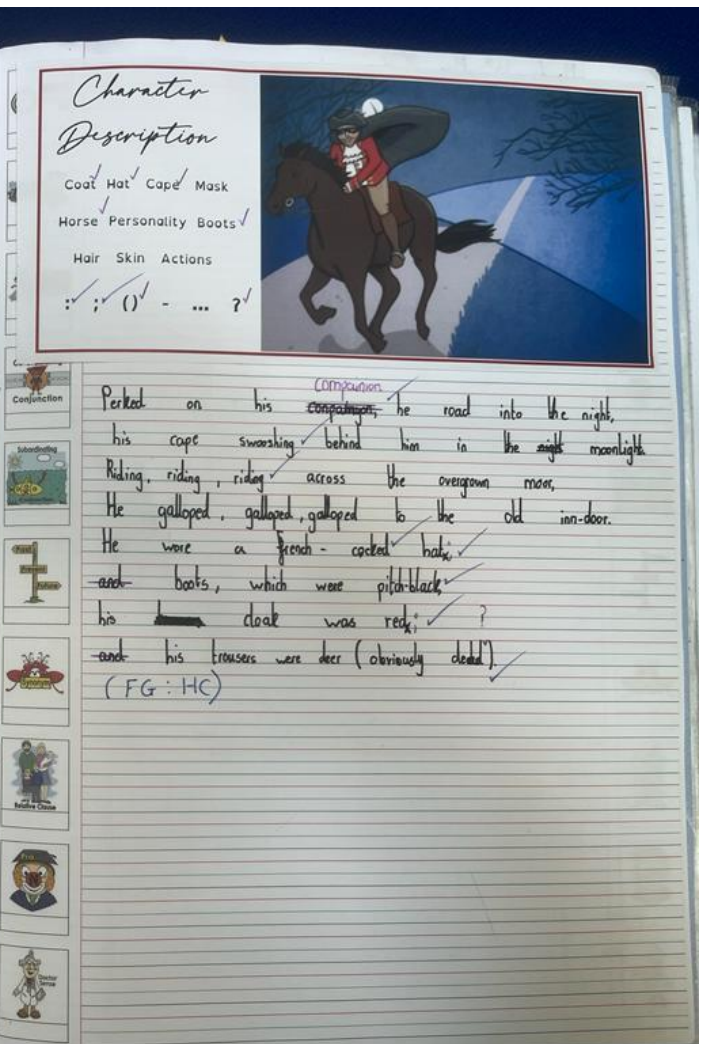 Character
Description
Coat Hat Cape Mask
Horse Personality Boots
Hair Skin Actions
: ; () - ... ?
Conjunction
Subordinating
Past
Present
Future
Relative Clause
Doctor
Sense
Companion
Perked on his he road into the night,
his cape swooshing behind him in the night moonlight.
Riding, riding, riding across the overgrown moor,
He galloped, galloped, galloped to the old inn-door.
He wore a french-cocked hat;
and boots, which were pitch-black,
his cloak was red; ?
and his trousers were deer (obviously dead).
(FG : HC)